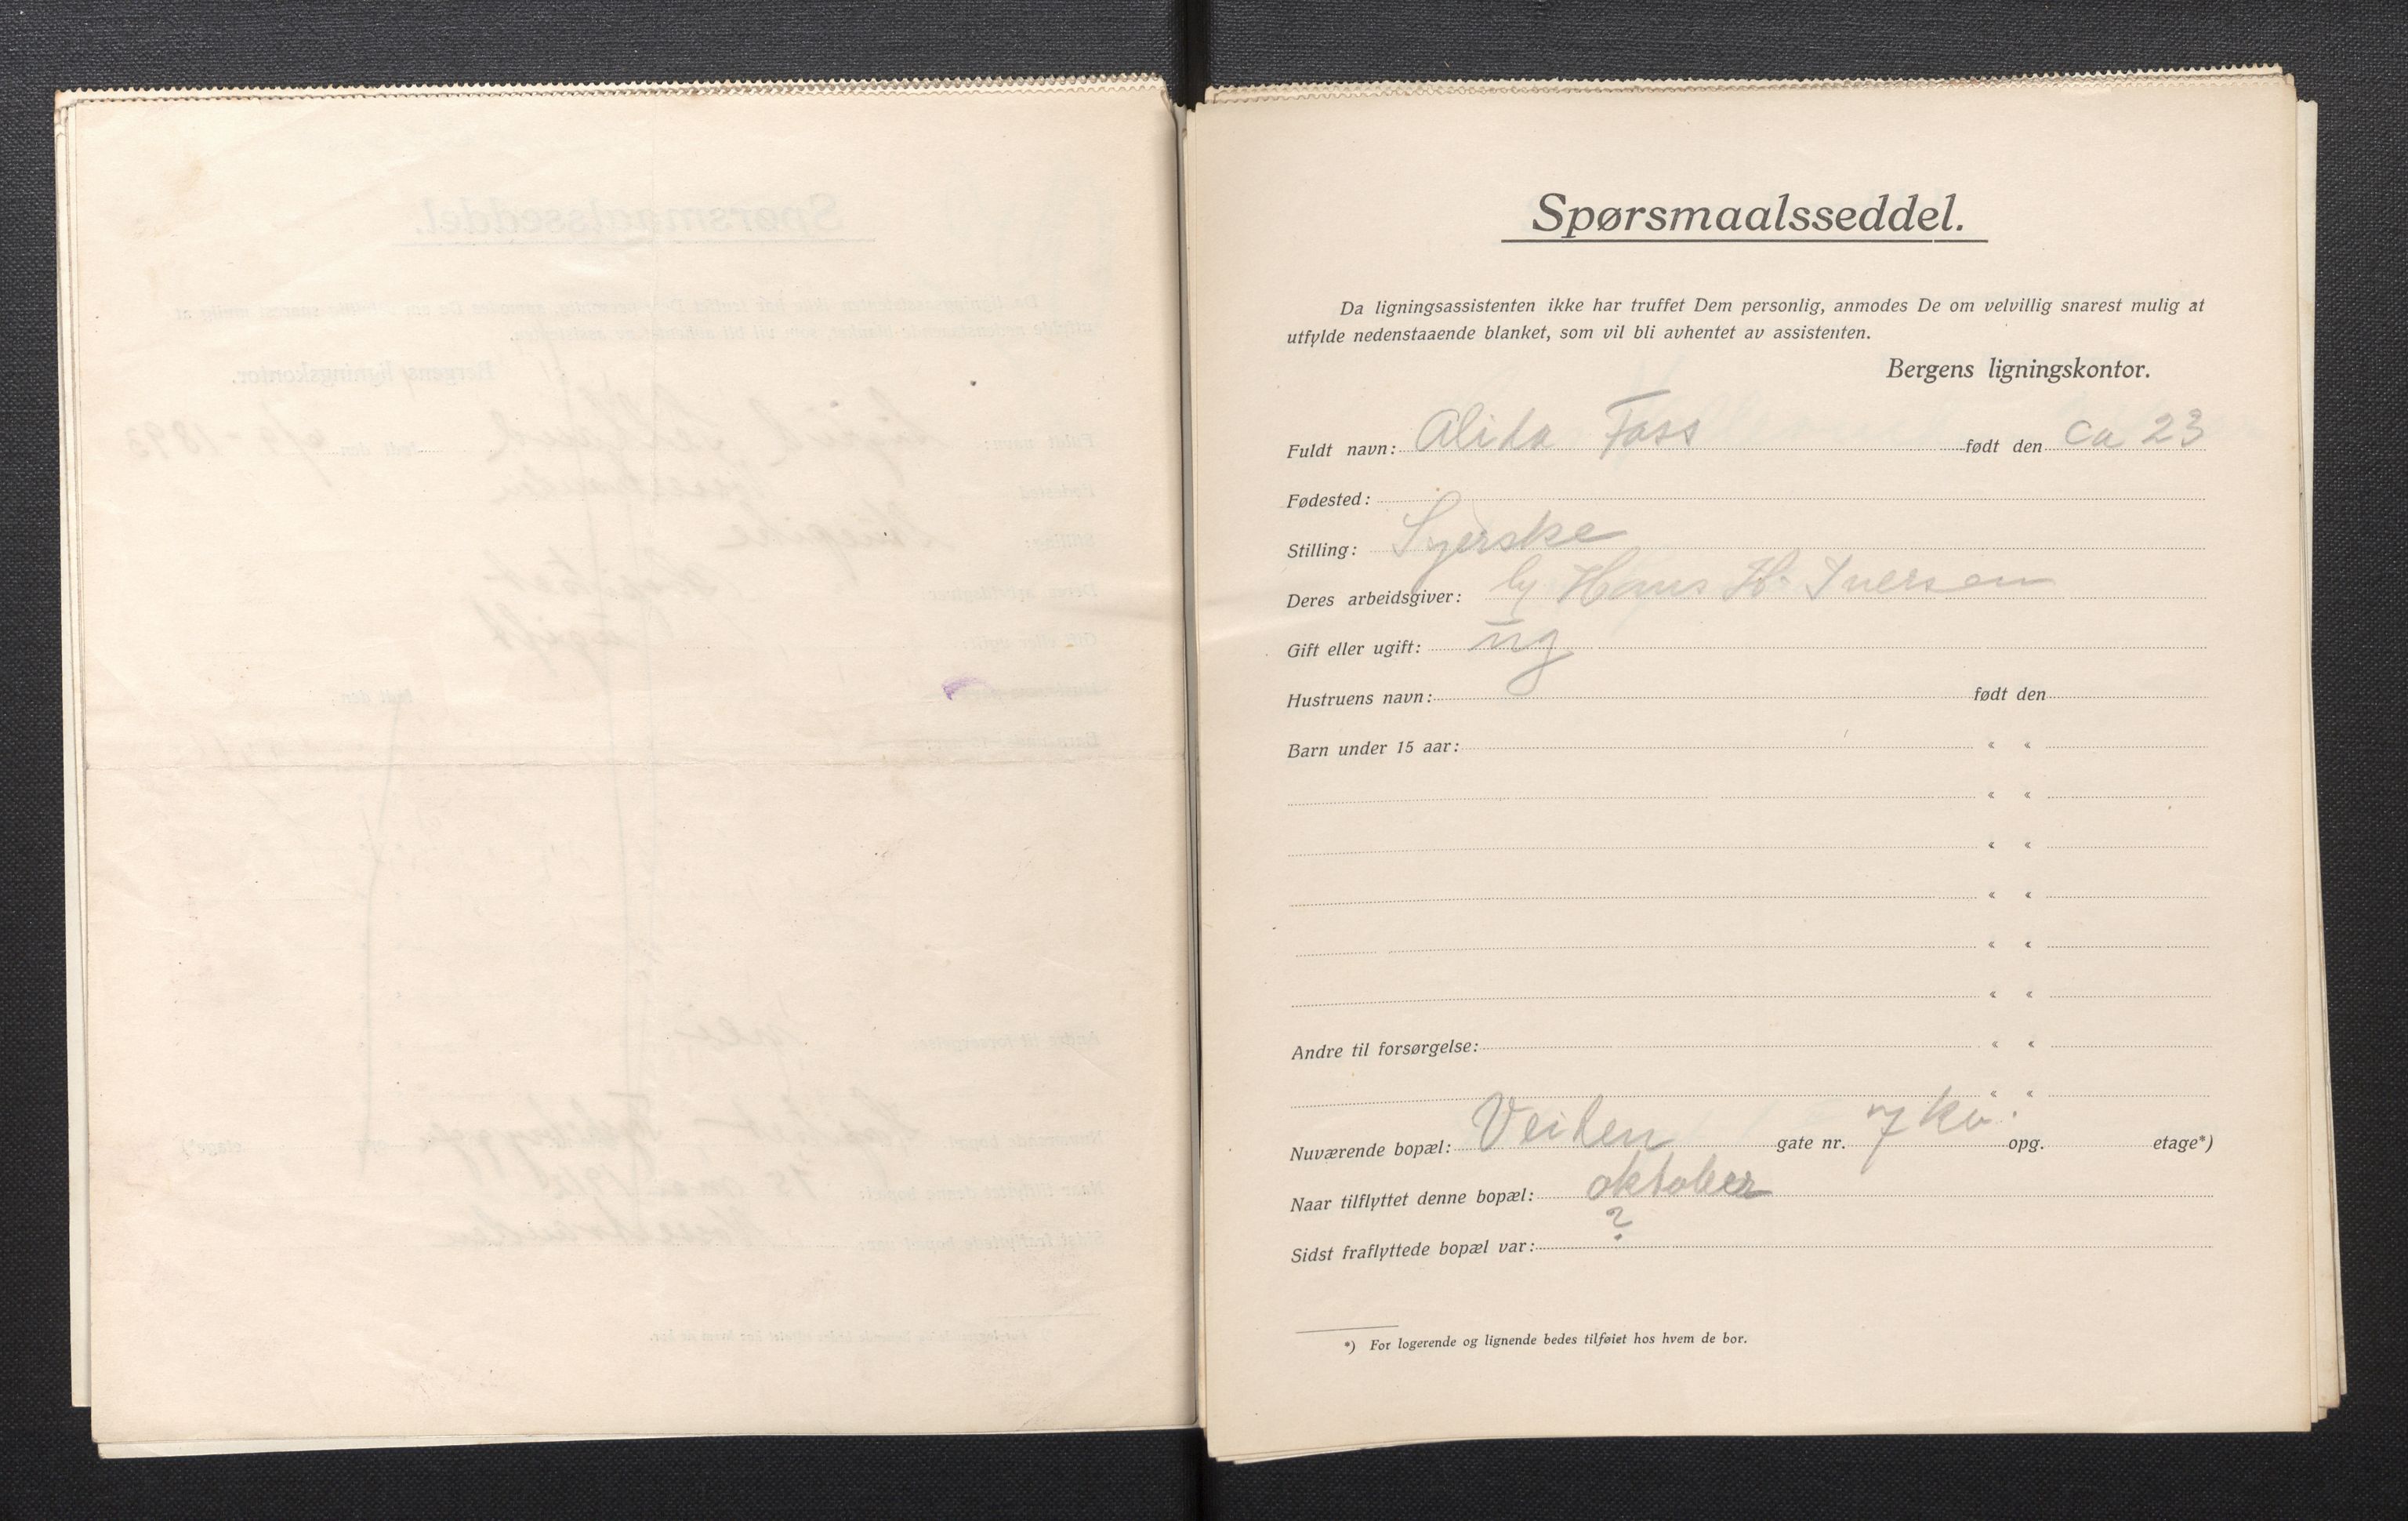 Spørsmaalsseddel.
Da ligningsassistenten ikke har truffet Dem personlig, anmodes De om velvillig snarest mulig at
utfylde nedenstaaende blanket, som vil bli avhentet av assistenten.
Bergens ligningskontor.
Fuldt navn: Alida Foss født den ca 23
Fødested:
Stilling: Syerske
Deres arbeidsgiver: Hans H. Iversen
Gift eller ugift: ug
Hustruens navn: født den
Barn under 15 aar: « «
« «
« «
« «
« «
« «
Andre til forsørgelse: « «
« «
Nuværende bopæl: Veiten gate nr. 7 kv. opg. etage*)
Naar tilflyttet denne bopæl: oktober
Sidst fraflyttede bopæl var: ?
*) For logerende og lignende bedes tilføiet hos hvem de bor.